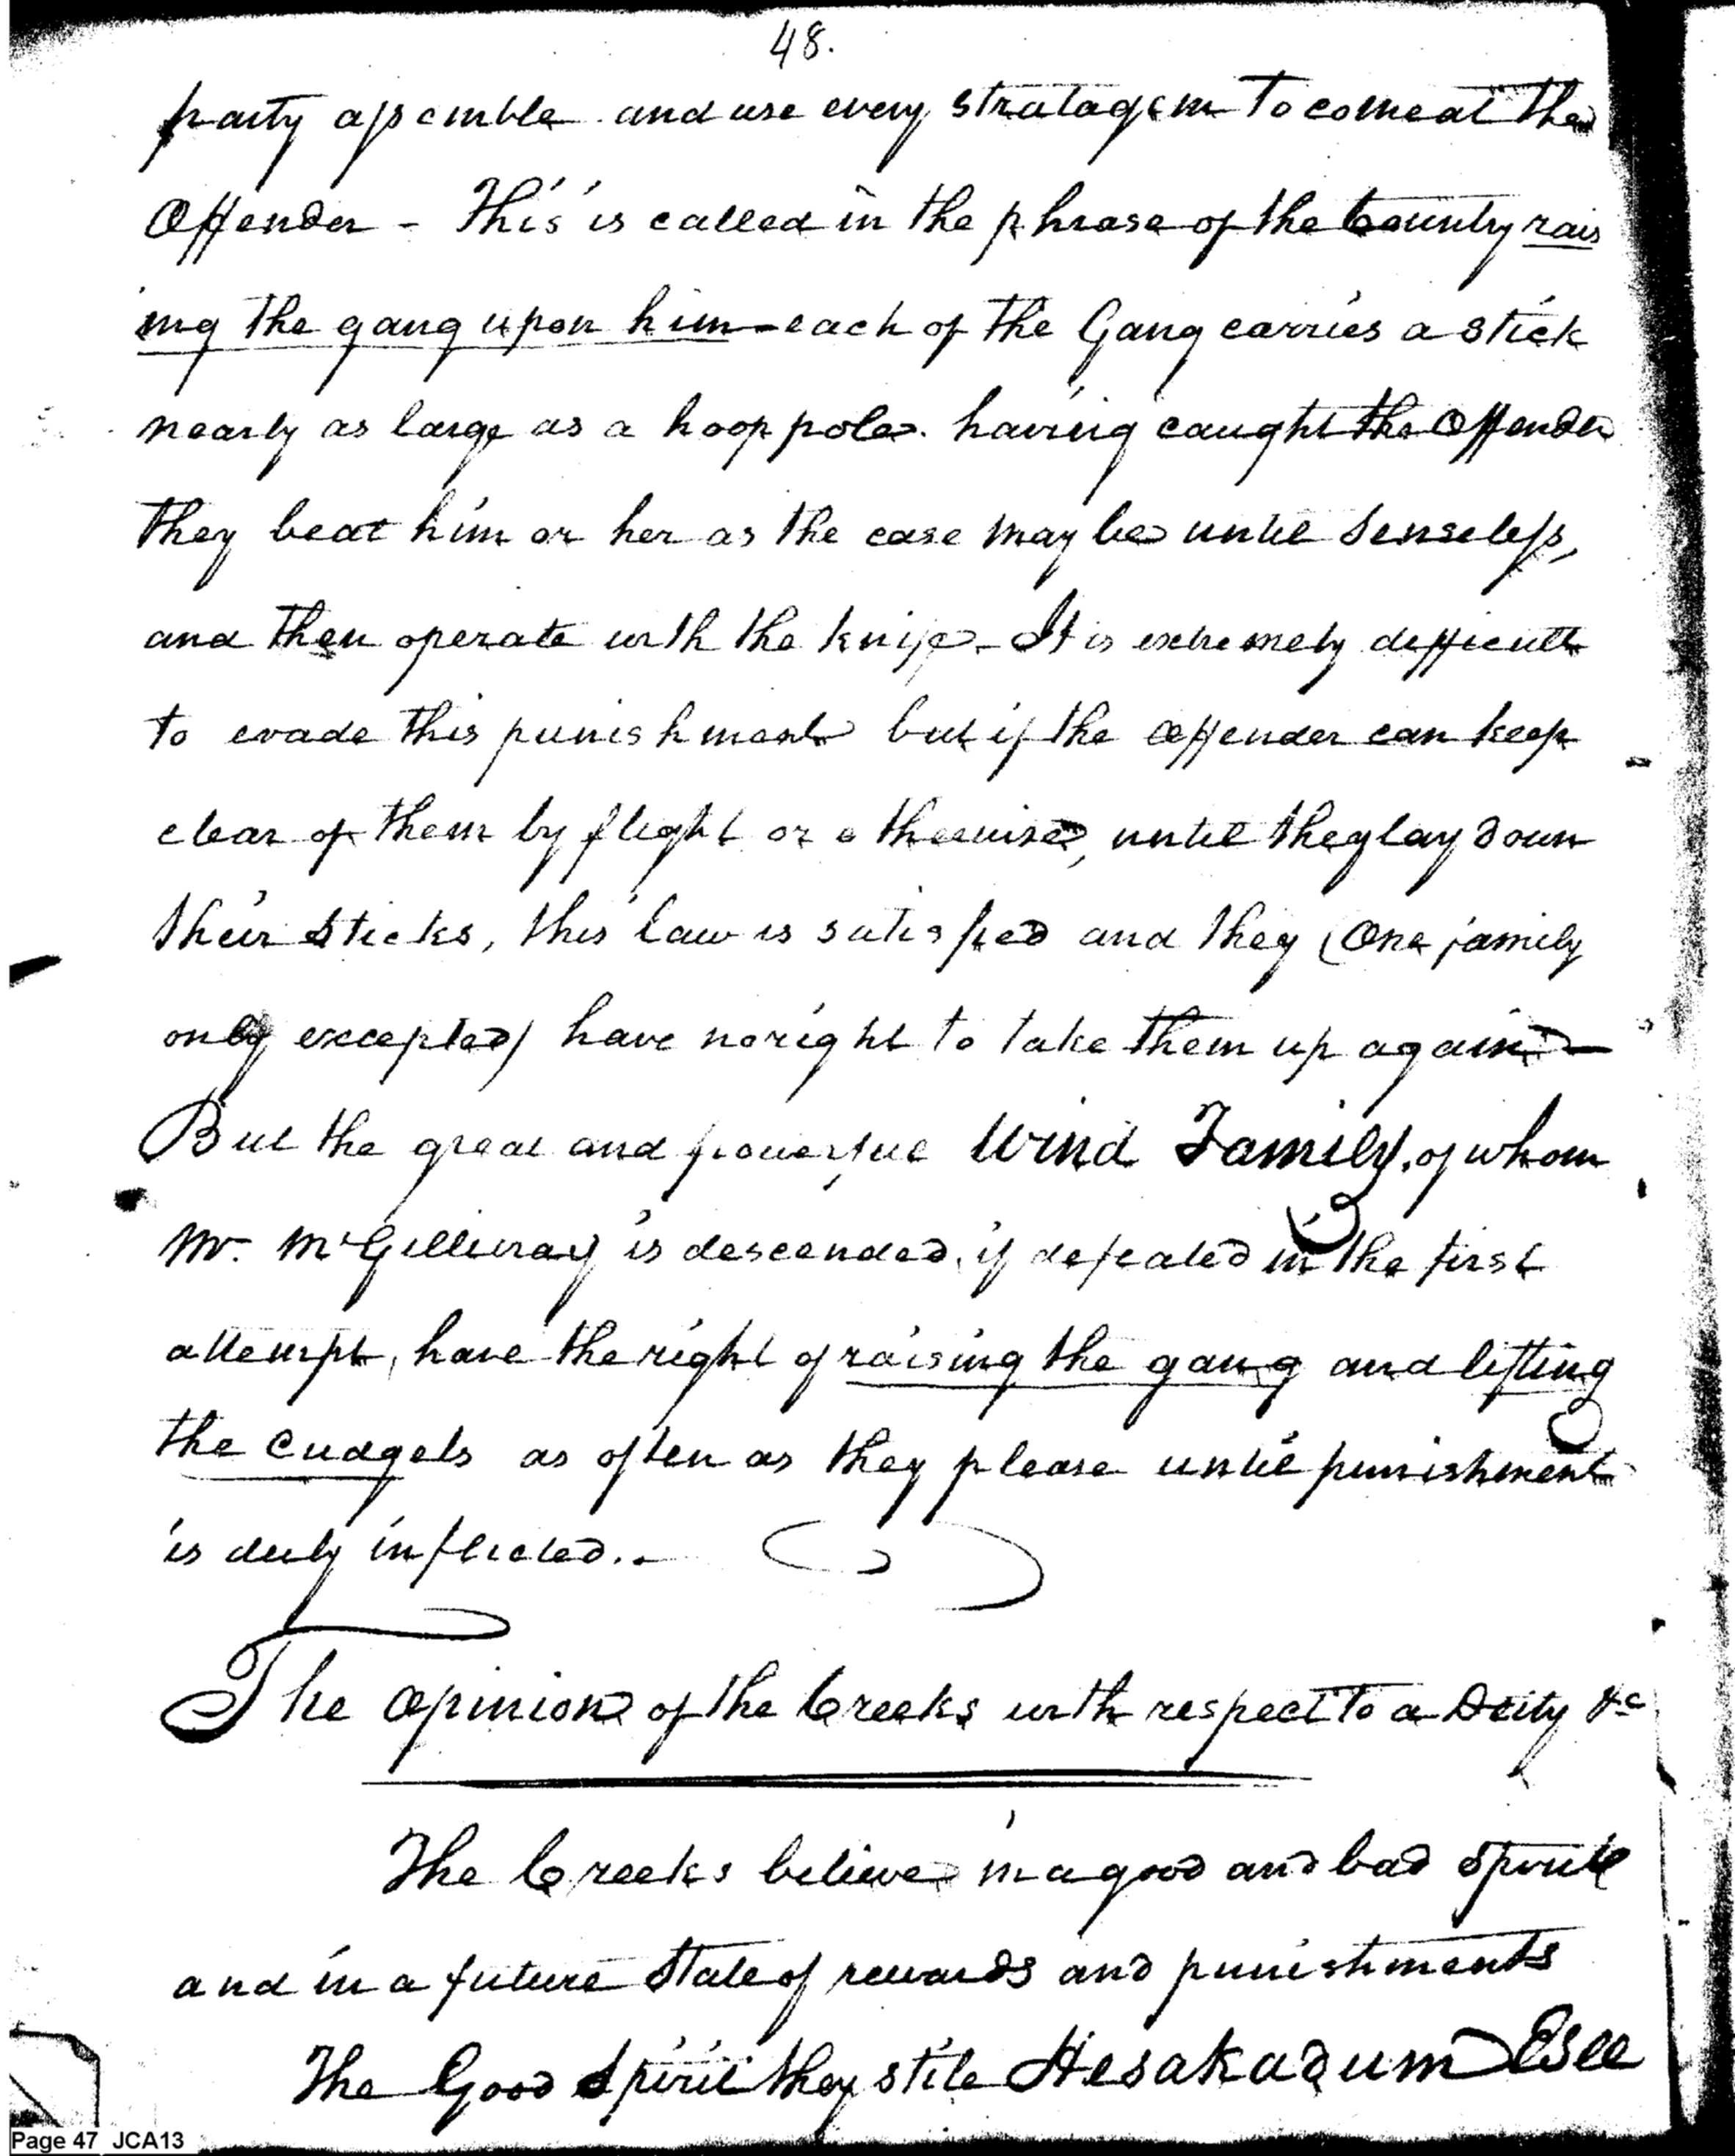 48.
party assemble and use every stratagem to comeat the
Offender - This is called in the phrase of the Country rais
ing the gang upon him - each of the Gang carries a stick
nearly as large as a hoop pole. having caught the Offender
they beat him or her as the case may be until senseless,
and then operate with the knife - It is extremely difficult
to evade this punishment but if the offender can keep
clear of them by flight or otherwise, until they lay down
their sticks, this law is satisfied and they (One family
only excepted) have no right to take them up again -
But the great and powerful Wind Family, of whom
Mr. McGillivray is descended, if defeated in the first
attempt, have the right of raising the gang and lifting
the cudgels as often as they please until punishment
is duly inflicted..
The Opinion of the Creeks with respect to a Deity &c
The Creeks believe in a good and bad Spirit
and in a future State of rewards and punishments
The Good Spirit they stile Hesakadum Esee
Page 47 JCA13